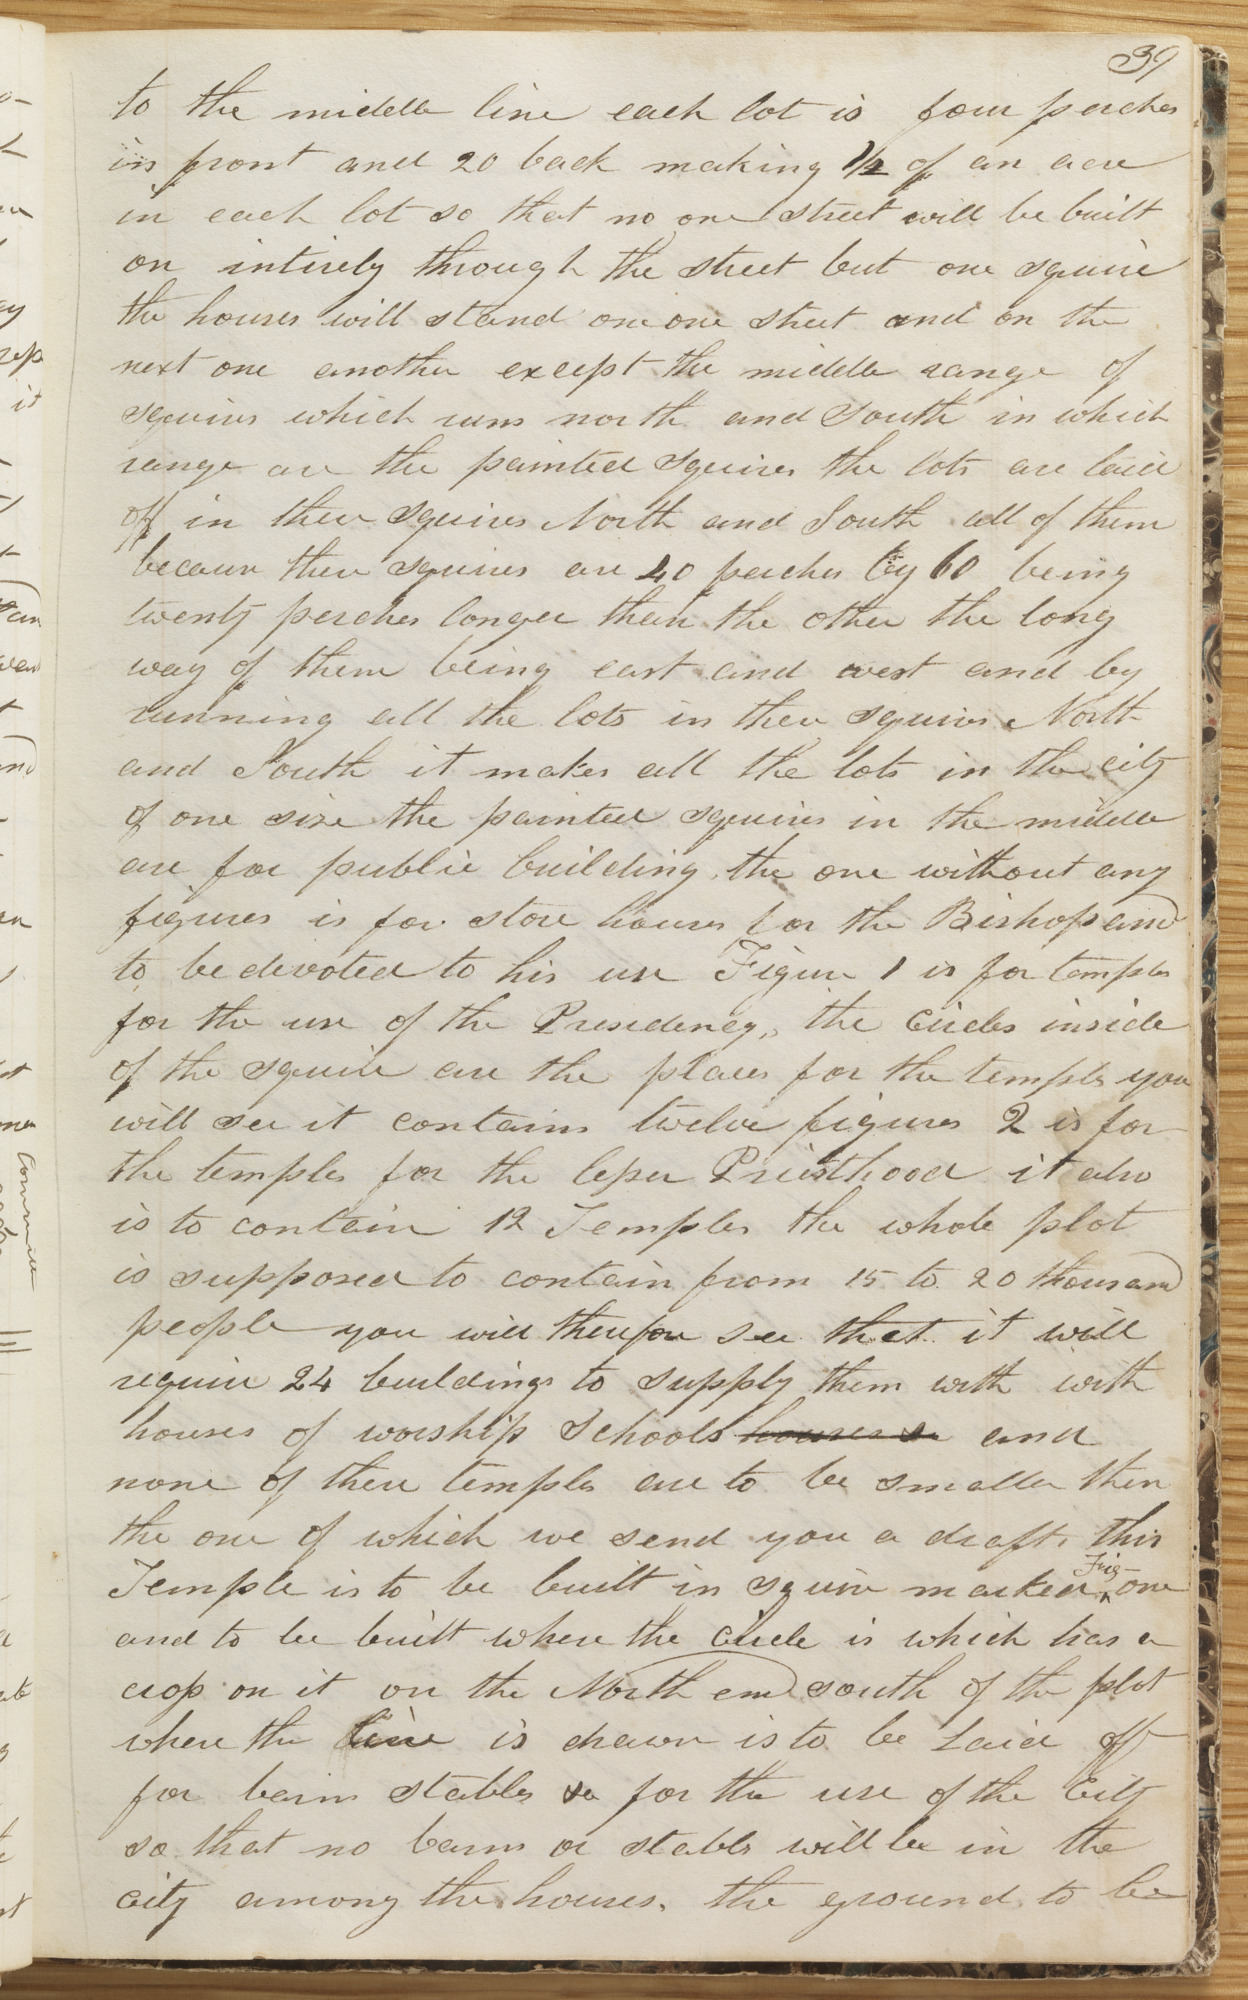 39
to the middle line each lot is four perches
in front and 20 back making 1/2 of an acre
in each lot so that no one street will be built
on intirely through the street but one squire
the houses will stand one one street and on the
next one another except the middle range of
squires which runs north and South in which
range are the painted squires the lots are laid
off in these squires North and South all of them
because these squires are 40 perches by 60 being
twenty perches longer than the other the long
way of them being east and west and by
running all the lots in these squires North
and South it makes all the lots in the city
of one size the painted squires in the middle
are for public building the one without any
figures is for store houses for the Bishop and
to be devoted to his use Figure 1 is for temples
for the use of the Presidency, the Circles inside
of the squire are the places for the temples you
will see it contains twelve figures 2 is for
the temples for the lesser Priesthood it also
is to contain 12 Temples the whole plot
is supposed to contain from 15 to 20 thousand
people you will therefore see that it will
require 24 buildings to supply them with with
houses of worship Schools houses and
none of these temples are to be smaller then
the one of which we send you a draft. this
Temple is to be built in squire marked Fig one
and to be built where the circle is which has a
cross on it on the North and south of the plot
where the line is drawn is to be Laid off
for barns stables &c for the use of the City
so that no barns or stables will be in the
city among the houses. the ground to be